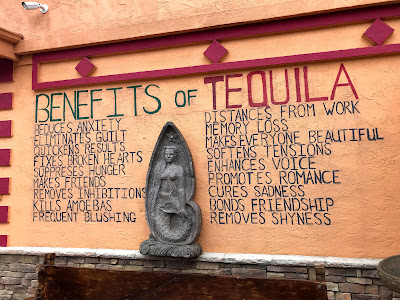 BENEFITS OF TEQUILA
REDUCES ANXIETY
ELIMINATES GUILT
QUICKENS RESULTS
FIXES BROKEN HEARTS
SUPPRESES HUNGER
MAKES FRIENDS
REMOVES INHIBITIONS
KILLS AMOEBAS
FREQUENT BLUSHING
DISTANCES FROM WORK
MEMORY LOSS
MAKES EVERYONE BEAUTIFUL
SOFTENS TENSIONS
ENHANCES VOICE
PROMOTES ROMANCE
CURES SADNESS
BONDS FRIENDSHIP
REMOVES SHYNESS